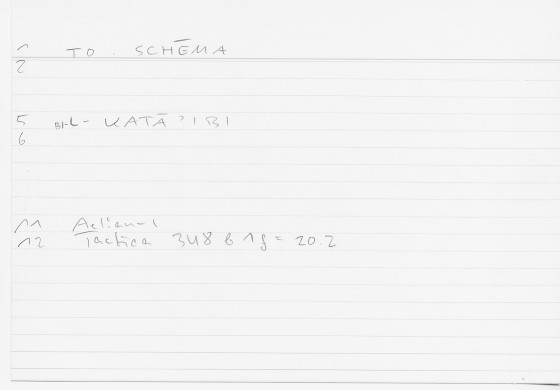 1 TO SCHĒMA
2
5 BI-L- KATĀ ' I BI
6
11 Aelian-1
12 Tactica 348 b 1 f = 20.2